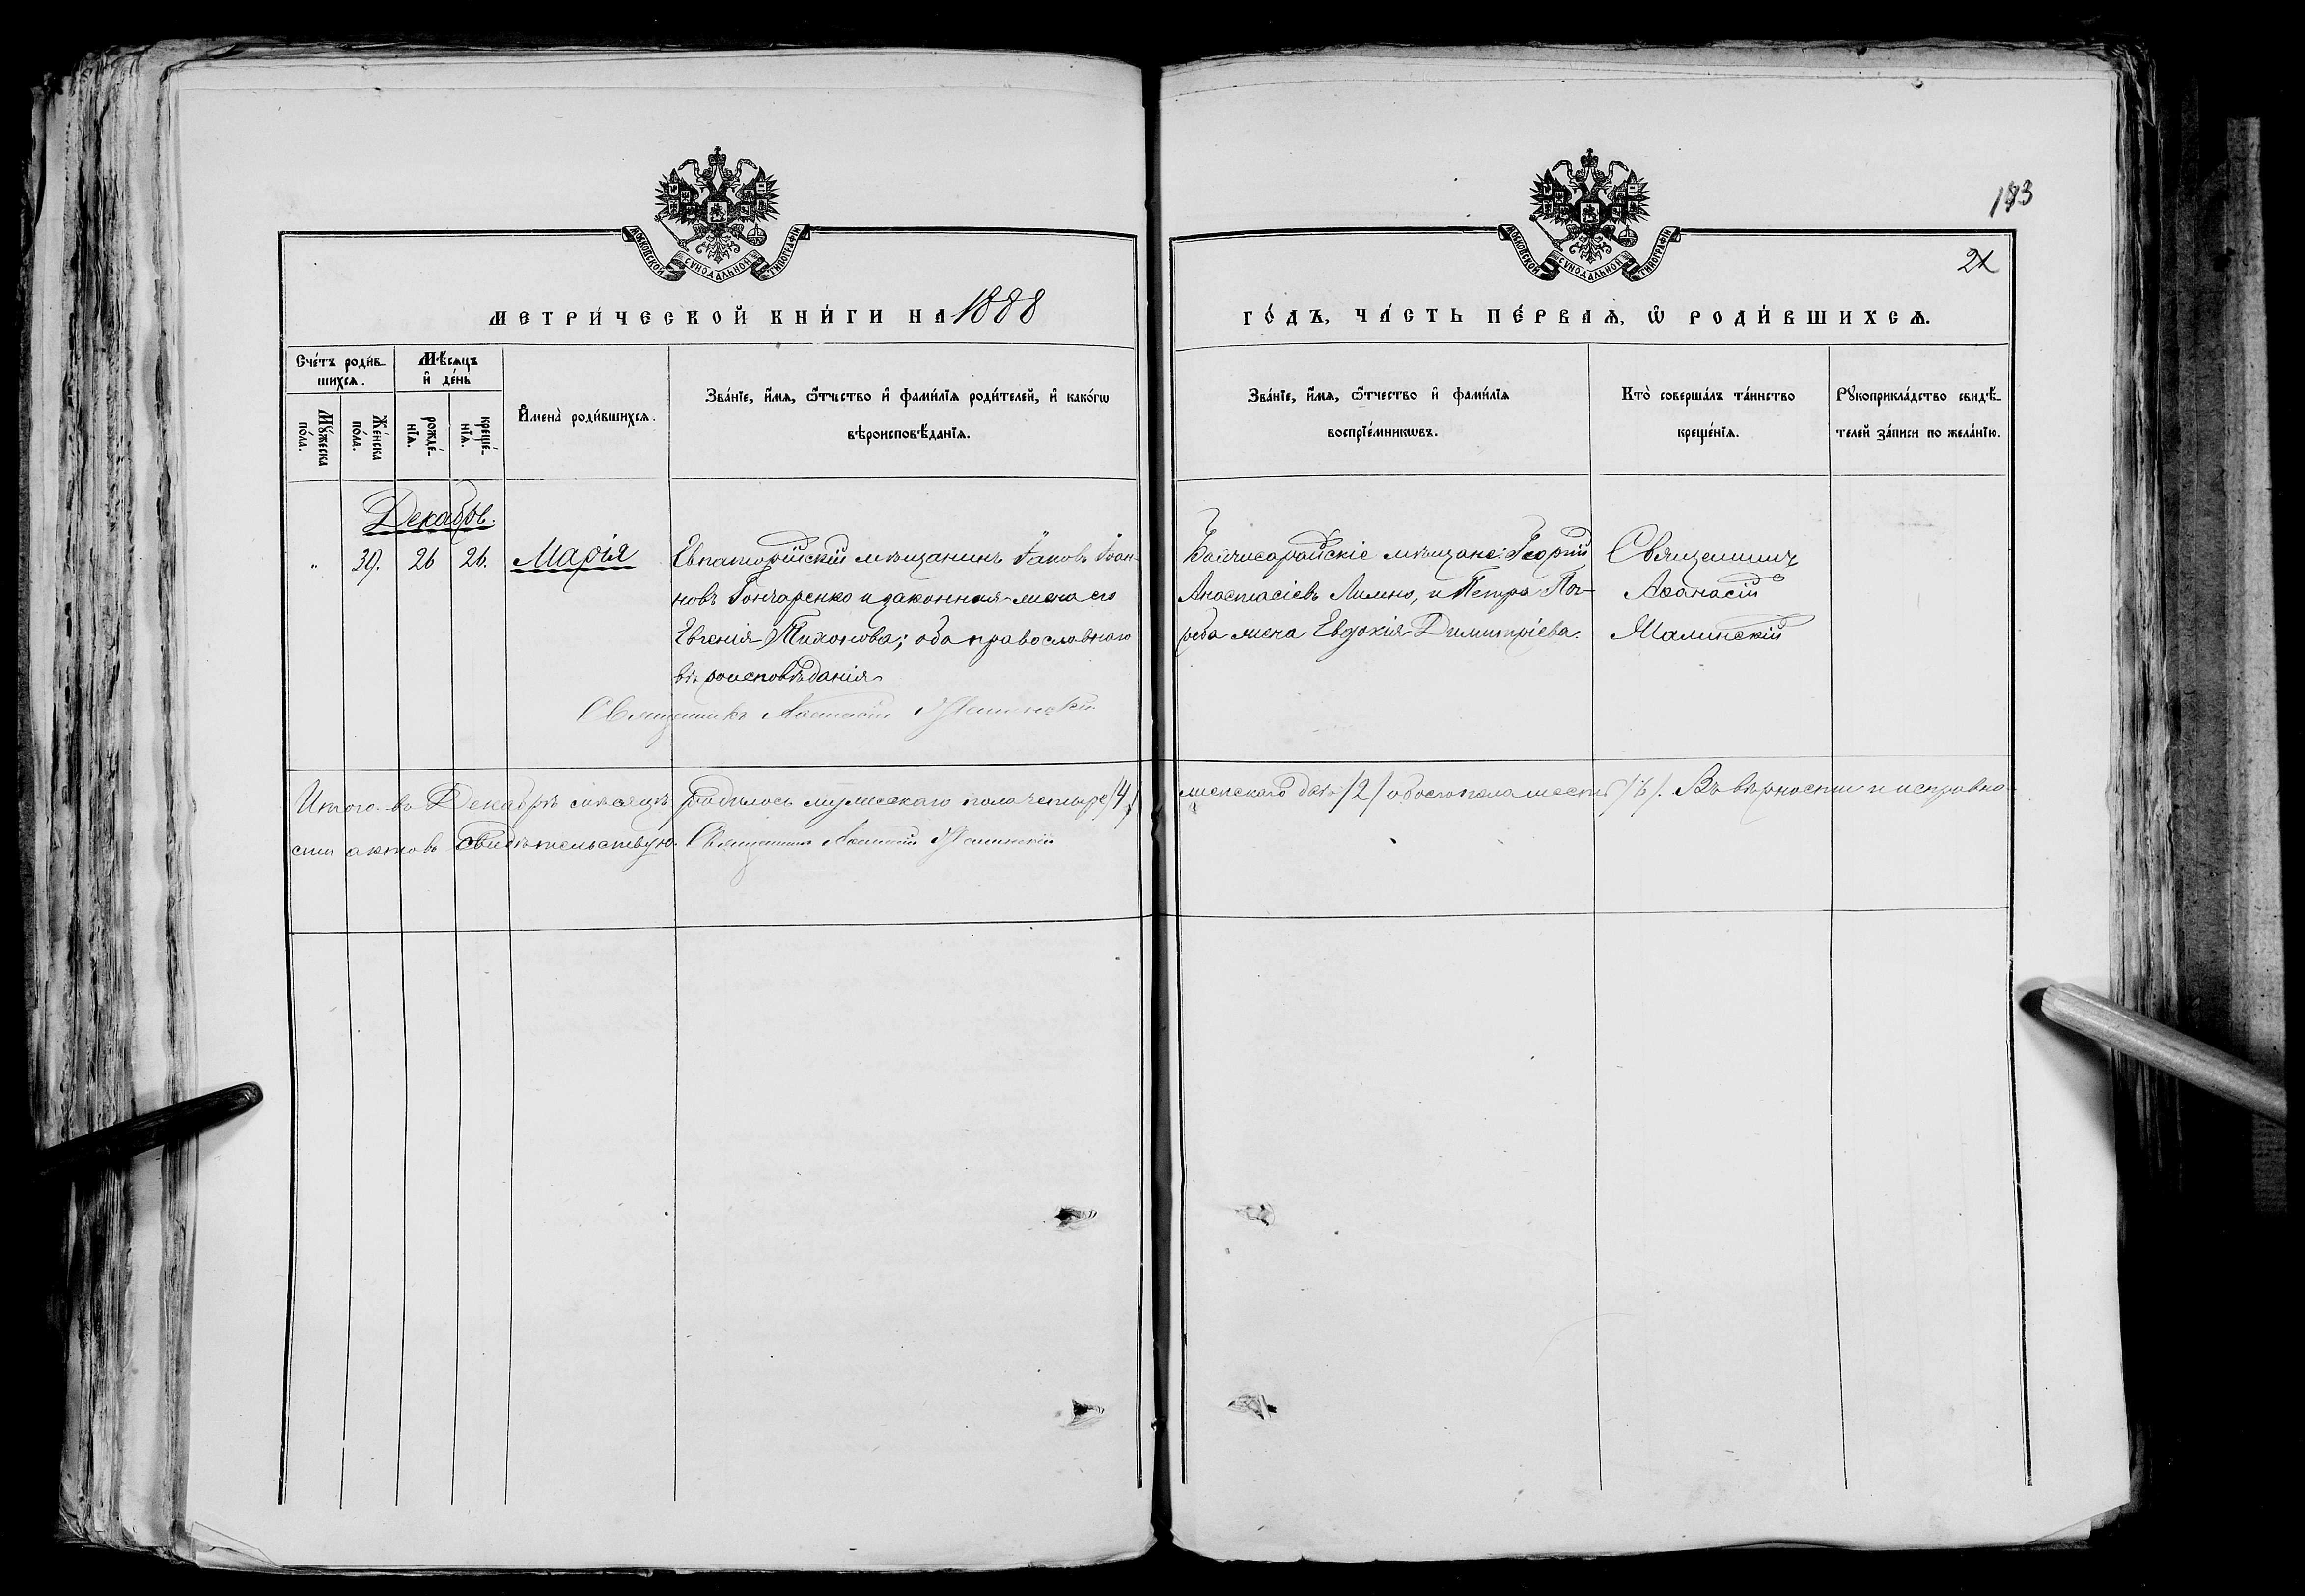 183
21
МОСКОВСКОЙ СѴНОДАЛЬНОЙ ТИПОГРАФІИ
МОСКОВСКОЙ СѴНОДАЛЬНОЙ ТИПОГРАФІИ
МЕТРИ́ЧЕСКОЙ КНИ́ГИ НА 1888
ГО́ДЪ, ЧА́СТЬ ПЕ́РВАѦ, Ѡ҆ РОДИ́ВШИХСѦ.
Сче́тъ роди́в-
шихсѧ.
Мѣ́сѧцъ
и҆ де́нь
Мꙋ́жеска
по́ла.
Же́нска
по́ла.
рожде́-
нїѧ.
креще́-
нїѧ.
И҆мена̀ роди́вшихсѧ.
Зва́нїе, и҆́мѧ, ѻ҆́тчество и҆ фами́лїѧ роди́телей, и҆ како́гѡ
вѣроисповѣ́данїѧ.
Зва́нїе, и҆́мѧ, ѻ҆́тчество и҆ фами́лїѧ
воспрїе́мникѡвъ.
Кто̀ соверша́лъ та́инство
креще́нїѧ.
Рꙋкоприкла́дство свидѣ́-
телей за́писи по жела́нїю.
Декабрь.
„ 39. 26 26. Марія
Евпаторійскій мѣщанинъ Іаковъ Іоан-
новъ Гончаренко и законная жена его
Евгенія Тихонова; оба православнаго
вѣроисповѣданія
Священникъ Аѳанасій Малинскій
Бахчисарайскіе мѣщане: Георгій
Анастасіевъ Лимно, и Петра
жена Евдокія Димитріева.
Священникъ
Аѳанасій
Малинскій
Итого въ Декабрѣ мѣсяцѣ родилось мужескаго пола четыре /4/ женскаго двѣ /2/ обоего пола шесть /6/. Въ вѣрности и исправно-
сти актовъ свидѣтельствую. Священникъ Аѳанасій Малинскій